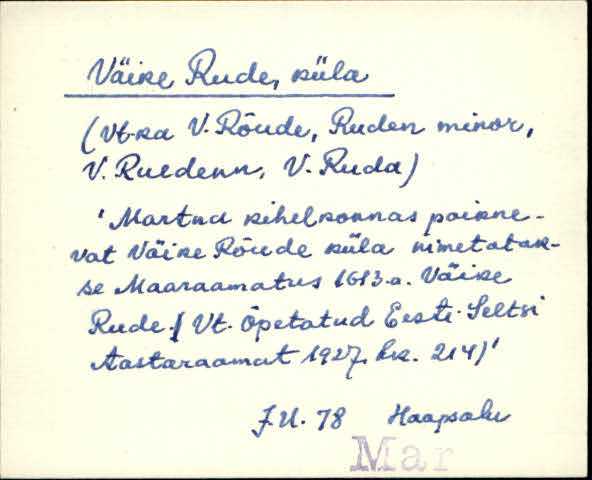 Väike Rude, küla
(Vt. ka V. Rõude, Ruden minor,
V. Ruedenn, V. Ruda)
'Martna kihelkonnas paikne-
vat Väike Rõude küla nimetatak-
se Maaraamatus 1613. a. Väike
Rude. (Vt. Õpetatud Eesti Seltsi
Aastaraamat 1927, lk. 214)'
J.U. 78 Haapsalu
Mar